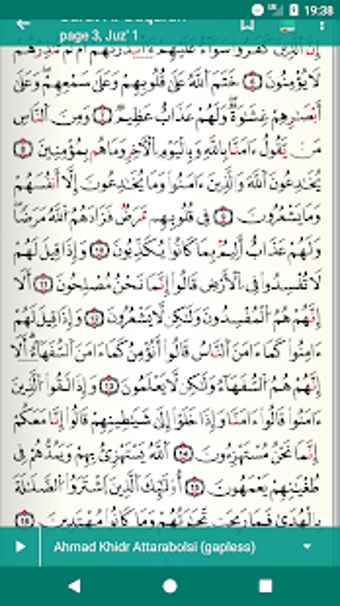 19:38
page 3, Juz' 1
إِنَّ ٱلَّذِينَ كَفَرُوا۟ سَوَآءٌ عَلَيْهِمْ
لَا يُؤْمِنُونَ خَتَمَ ٱللَّهُ عَلَىٰ قُلُوبِهِمْ وَعَلَىٰ سَمْعِهِمْ وَعَلَىٰ
أَبْصَٰرِهِمْ غِشَٰوَةٌ وَلَهُمْ عَذَابٌ عَظِيمٌ وَمِنَ ٱلنَّاسِ
مَن يَقُولُ ءَامَنَّا بِٱللَّهِ وَبِٱلْيَوْمِ ٱلْأَخِرِ وَمَا هُم بِمُؤْمِنِينَ
يُخَٰدِعُونَ ٱللَّهَ وَٱلَّذِينَ ءَامَنُوا۟ وَمَا يُخَٰدِعُونَ إِلَّآ أَنفُسَهُمْ
وَمَا يَشْعُرُونَ فِى قُلُوبِهِم مَّرَضٌ فَزَادَهُمُ ٱللَّهُ مَرَضًا
وَلَهُمْ عَذَابٌ أَلِيمٌۢ بِمَا كَانُوا۟ يُكَذِّبُونَ وَإِذَا قِيلَ لَهُمْ
لَا تُفْسِدُوا۟ فِى ٱلْأَرْضِ قَالُوٓا۟ إِنَّمَا نَحْنُ مُصْلِحُونَ أَلَآ
إِنَّهُمْ هُمُ ٱلْمُفْسِدُونَ وَلَٰكِن لَّا يَشْعُرُونَ وَإِذَا قِيلَ لَهُمْ
ءَامِنُوا۟ كَمَآ ءَامَنَ ٱلنَّاسُ قَالُوٓا۟ أَنُؤْمِنُ كَمَآ ءَامَنَ ٱلسُّفَهَآءُ أَلَآ
إِنَّهُمْ هُمُ ٱلسُّفَهَآءُ وَلَٰكِن لَّا يَعْلَمُونَ وَإِذَا لَقُوا۟ ٱلَّذِينَ
ءَامَنُوا۟ قَالُوٓا۟ ءَامَنَّا وَإِذَا خَلَوْا۟ إِلَىٰ شَيَٰطِينِهِمْ قَالُوٓا۟ إِنَّا مَعَكُمْ
إِنَّمَا نَحْنُ مُسْتَهْزِءُونَ ٱللَّهُ يَسْتَهْزِئُ بِهِمْ وَيَمُدُّهُمْ فِى
طُغْيَٰنِهِمْ يَعْمَهُونَ أُو۟لَٰٓئِكَ ٱلَّذِينَ ٱشْتَرَوُا۟ ٱلضَّلَٰلَةَ
بِٱلْهُدَىٰ فَمَا رَبِحَت تِّجَٰرَتُهُمْ وَمَا كَانُوا۟ مُهْتَدِينَ
Ahmad Khidr Attarabolsi (gapless)